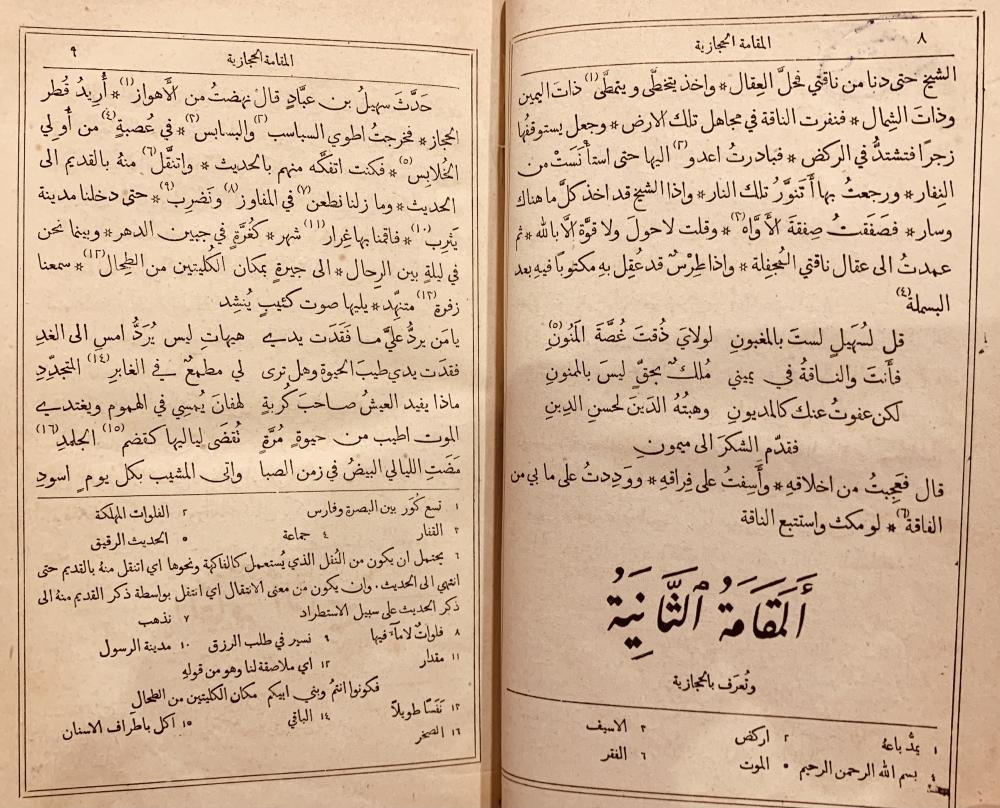 ٨
المقامة الحجازية
الشيخ حتى دنا من ناقتي فحلَّ العِقال * واخذ يتخطَّى و يتمطَّى(١) ذاتَ اليمين
وذاتَ الشِمال * فنفرت الناقة في مجاهل تلك الارض * وجعل يستوقفُها
زجرًا فتشتدُّ في الركض * فبادرتُ اعدو(٢) اليها حتى استأنَسَتْ من
النِفار * ورجعتُ بها أَتنوَّرُ تلك النار * واذا الشيخ قد اخذ كلَّ ما هناك
وسار * فصَفَقتُ صِفقةَ الأَوَّاه(٣) * وقلت لا حولَ ولا قوَّة الَّا بالله * ثم
عمدتُ الى عقال ناقتي المُجفِلة * واذا طِرْسٌ قد عُقِل بهِ مكتوبًا فيهِ بعد
البسملة(٤)
قل لسُهَيلٍ لستَ بالمغبونِ لولايَ ذُقتَ غُصَّةَ المَنُونِ(٥)
فأَنتَ والناقةُ في يميني مُلكٌ بحقٍّ ليسَ بالممنونِ
لكن عفوتُ عنك كالمديونِ وهبتُهُ الدَينَ لحسنِ الدِينِ
فقدّمِ الشكرَ الى ميمونِ
قال فعَجِبتُ من اخلاقهِ * وأَسِفتُ على فِراقهِ * ووَدِدتُ على ما بي من
الفاقة(٦) * لو مكث واستتبع الناقة
أَلمَقَامَةُ ٱلثَّانِيَةُ
وتُعرَف بالحجازية
١ يمدُّ باعهُ ٢ اركض ٣ الاسيف
٤ بسم الله الرحمن الرحيم ٥ الموت ٦ الفقر
٩
المقامة الحجازية
حَدَّثَ سهيلُ بن عبَّادٍ قال نهضتُ من الأَهواز(١) * أُريدُ قُطر
الحجاز * فخرجتُ اطوي السباسب(٢) والبسابس(٣) * في عُصبةٍ(٤) من أُولي
الخُلابِس(٥) * فكنت اتفكَّه منهم بالحديث * واتنقَّل(٦) منهُ بالقديم الى
الحديث * وما زلنا نطعن(٧) في المفاوز(٨) ونَضرِب(٩) * حتى دخلنا مدينة
يَثرِب(١٠) * فاقمنا بها غِرار(١١) شهر * كغُرَّةٍ في جبين الدهر * وبينما نحن
في ليلةٍ بين الرِحال * الى جيرةٍ بمكان الكُليتين من الطِحال(١٢) * سمعنا
زفرة(١٣) متنهِّد * يليها صوت كئيبٍ يُنشِد
يا مَن يردُّ عليَّ ما فَقَدَت يدي هيهاتِ ليس يُرَدُّ امسِ الى الغدِ
فقدَت يدي طيبَ الحيوة وهل ترى لي مطمعٌ في الغابر(١٤) المتجدِّدِ
ماذا يفيد العيشُ صاحبَ كُربةٍ لهفانَ يُمسِي في الهموم ويغتدي
الموت اطيب من حيوةٍ مُرَّةٍ تُقضَى لياليها كقضم(١٥) الجلمدِ(١٦)
مَضَتِ الليالي البيضُ في زمن الصبا واتى المشيب بكل يومٍ اسودِ
١ تسع كُوَرٍ بين البصرة وفارس ٢ الفلوات المهلكة
٣ القفار ٤ جماعة ٥ الحديث الرقيق
٦ يحتمل ان يكون من النُقل الذي يُستعمل كالفاكهة ونحوها اي اتنقل منهُ بالقديم حتى
انتهي الى الحديث. وان يكون من معنى الانتقال اي انتقل بواسطة ذكر القديم منهُ الى
ذكر الحديث على سبيل الاستطراد ٧ نذهب
٨ فلوات لا ماءَ فيها ٩ نسير في طلب الرزق ١٠ مدينة الرسول
١١ مقدار ١٢ اي ملاصقة لنا وهو من قولهِ
فكونوا انتمُ وبني ابيكم مكان الكليتين من الطحال
١٣ نَفَسًا طويلًا ١٤ الباقي ١٥ اكل باطراف الاسنان
١٦ الصخر